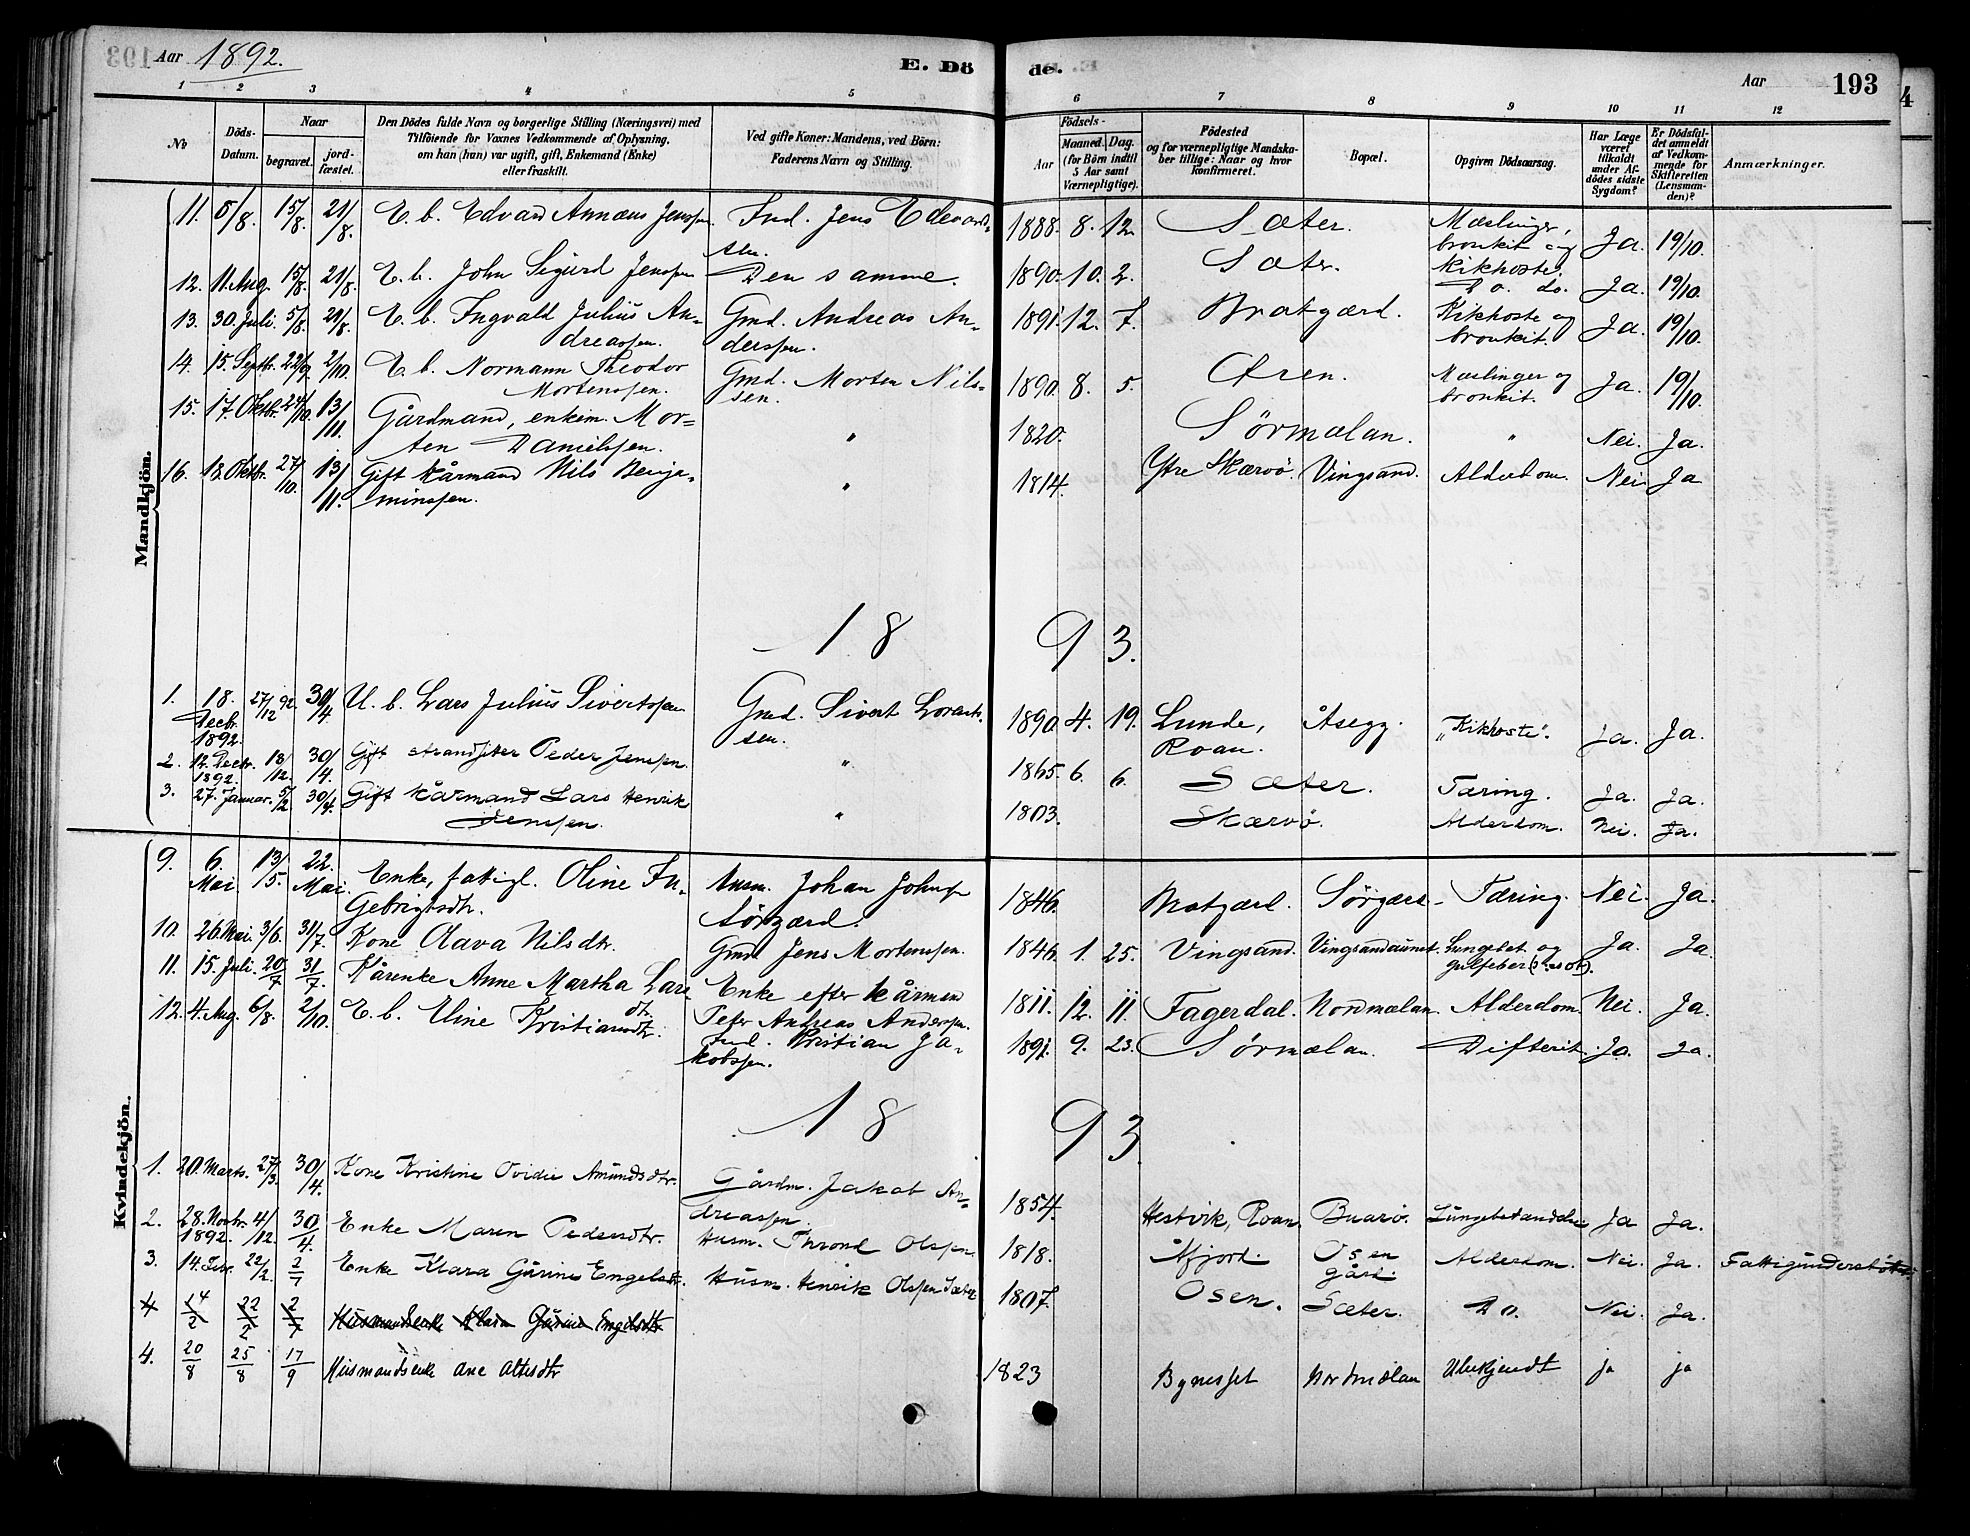 Aar 1892. E. Dö de. Aar 193
1 2 3 4 5 6 7 8 9 10 11 12
No
Döds-Datum.
Naar
begravet.
jord-fæstet.
Den Dödes fulde Navn og borgerlige Stilling (Næringsvei) med
Tilföiende for Voxnes Vedkommende af Oplysning,
om han (hun) var ugift, gift, Enkemand (Enke)
eller fraskilt.
Ved gifte Koner: Mandens, ved Börn:
Faderens Navn og Stilling.
Födsels-
Aar
Maaned.
Dag.
(for Börn indtil
5 Aar samt
Værnepligtige).
Födested
og for værnepligtige Mandska-
ber tillige: Naar og hvor
konfirmeret.
Bopæl.
Opgiven Dödsaarsag.
Har Læge
været
tilkaldt
under Af-
dödes sidste
Sygdom?
Er Dödsfal-
det anmeldt
af Vedkom-
mende for
Skifteretten
(Lensman-
den)?
Anmærkninger.
Mandkjön.
11. 5/8. 15/8. 21/8. E. b. Edvard Annæus Jenssen Ind. Jens Edvard- 1888. 8. 12. Sæter. Mæslinger, Ja. 19/10.
sen. bronkit og
kikhoste.
12. 11. Aug. 15/8. 21/8. E. b. John Sigurd Jenssen Den samme. 1890. 10. 2. Sæter. Do. do. Ja. 19/10.
13. 30. Juli. 5/8. 21/8. E. b. Ingvald Julius An- Gmd. Andreas An- 1891. 12. 7. Bratgærd. Kikhoste og Ja. 19/10.
dreassen. derssen. bronkit.
14. 15. Septbr. 22/9. 2/10. E. b. Normann Theodor Gmd. Morten Nils- 1890. 8. 5. Mæslinger og Ja. 19/10.
Mortenssen. sen. bronkit.
15. 17. Oktbr. 24/10. 13/11. Gårdmand, enkem. Mor- " 1820. Sörmælan. " Nei. Ja.
ten Danielssen.
16. 18. Oktbr. 27/10. 13/11. Gift kårmand Nils Benja- " 1814. Ytre Skærvö. Vingsand. Alderdom. Nei. Ja
minssen.
18 93.
1. 18. Decbr. 1892. 27/12 92. 30/4 U. b. Lars Julius Sivertssen Gmd. Sivert Lorents- 1890. 4. 19. Lunde, Åsegg. "Kikhoste". Ja. Ja.
sen. Roan.
2. 12. Decbr. 1892. 18/12. 30/4. Gift strandsiter Peder Jenssen. " 1865. 6. 6. Sæter. Tæring. Ja. Ja.
3. 27. Januar. 5/2 30/4. Gift kårmand Lars Henrik " 1803. Skærvö. Alderdom. Nei. Ja.
Jenssen.
Kvindekjön.
9. 6. Mai. 13/5. 22. Mai. Enke, fattigl. Oline In- Husm. Johan Johns. 1846. Bratgærd. Sörgærd. Tæring. Nei. Ja.
gebrigtsdtr. Sörgærd.
10. 26. Mai. 3/6. 31/7. Kone Olava Nilsdtr. Gmd. Jens Mortenssen. 1846. 1. 25. Vingsand. Vingsandaunet. Lungebet. og Ja. Ja
11. 15. Juli. 20/7 31/7. Kårenke Anne Martha Lars- Enke efter kårmand 1811. 12. 11. Fagerdal. Nordmælan. Alderdom. Nei. Ja.
dtr. Peter Andreas Anderssen.
12. 4. Aug. 6/8. 2/10. E. b. Eline Kristiansdtr. Ind. Kristian Ja- 1891. 9. 23. Sörmælan. Difterit. Ja. Ja.
kobssen.
18 93.
1. 20. Marts. 27/3. 30/4. Kone Kristine Ovidie Amundsdtr. Gårdm. Jakob An- 1854. Hestvik, Roan. Buarö. Ja Ja.
dreassen.
2. 28. Novbr. 1892. 4/12. 30/4. Enke Maren Pedersdtr. Husm. Thrond Olssen. 1818. Åfjord. Osen Alderdom. Nei. Ja. Fattigunderstöttet
gård.
3. 14. Febr. 22/2. 2/7 Enke Klara Gurine Engelsdtr. Husm. Henrik Olssen Sæter 1807. Osen. Sæter. Do. Nei. Ja.
4 14/2 22/2 2/7 Husmandsenke Klara Gurine Engelsdtr
4. 20/8 25/8 17/9 Husmandsenke Ane 1823 Bynesset Nordmælan Ubekjendt ja ja